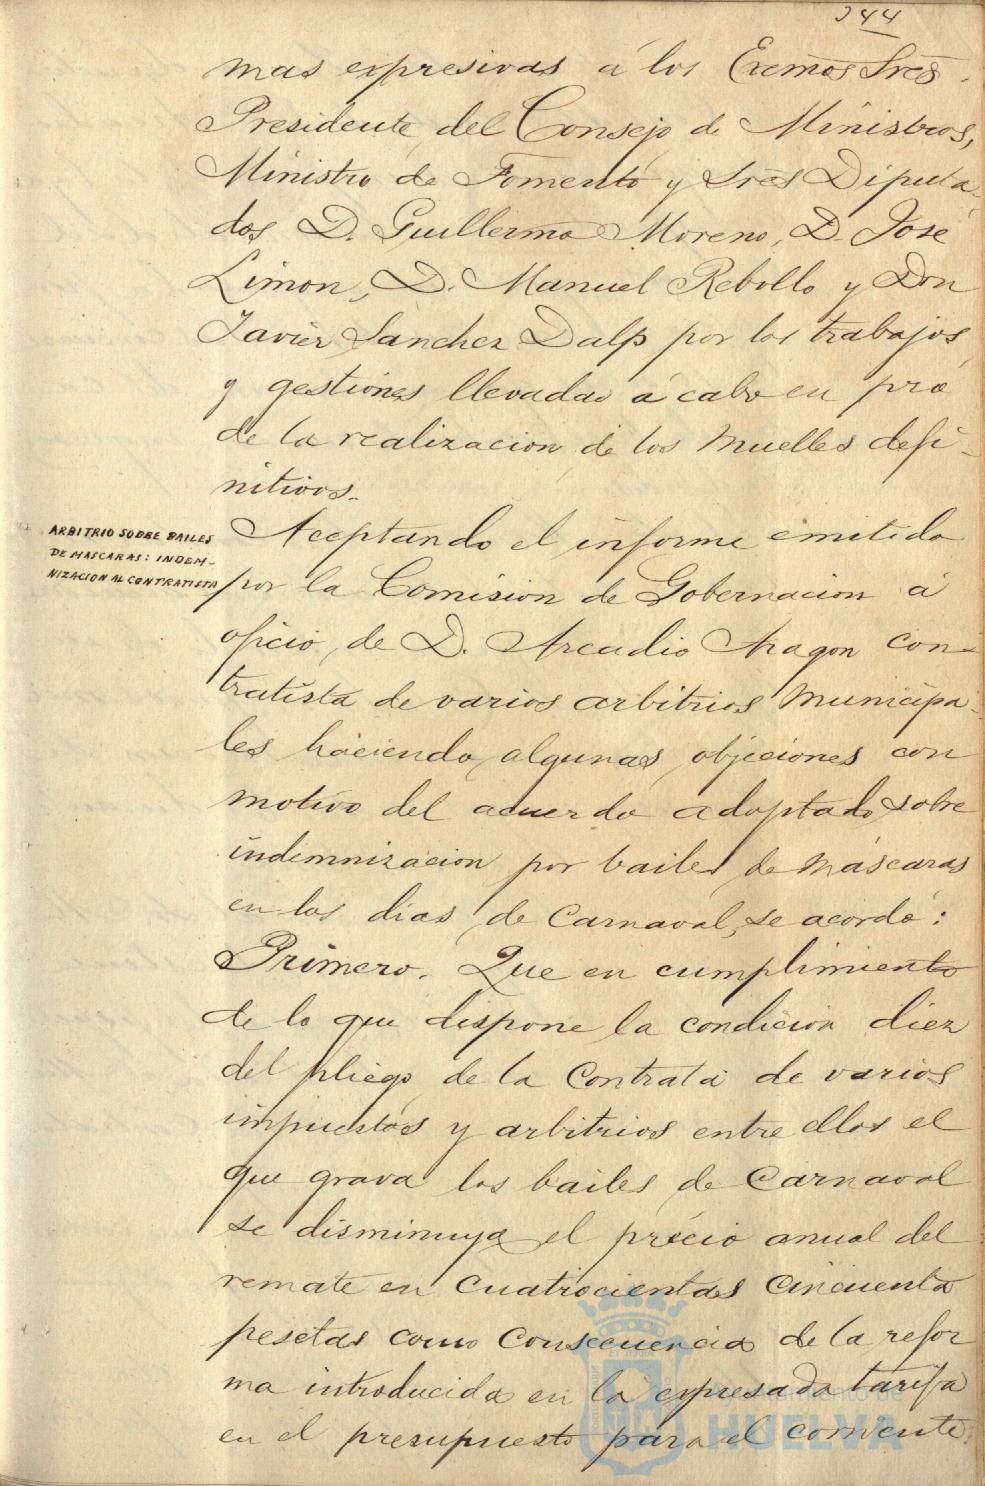 344
mas expresivas á los Excmos Sres.
Presidente del Consejo de Ministros,
Ministro de Fomento y Sres Diputa-
dos D. Guillermo Moreno, D. José
Limon, D. Manuel Rebollo y Don
Javier Sanchez Dalp por los trabajos
y gestiones llevadas á cabo en pro
de la realizacion de los muelles defi-
nitivos.
ARBITRIO SOBRE BAILES
DE MASCARAS: INDEM-
NIZACION AL CONTRATISTA
Aceptando el informe emitido
por la Comision de Gobernacion á
oficio de D. Arcadio Aragon con-
tratista de varios arbitrios municipa-
les haciendo algunas objeciones con
motivo del acuerdo adoptado sobre
indemnizacion por bailes de máscaras
en los dias de Carnaval, se acordó:
Primero. Que en cumplimiento
de lo que dispone la condicion diez
del pliego de la contrata de varios
impuestos y arbitrios entre ellos el
que grava los bailes de Carnaval
se disminuya el precio anual del
remate en cuatrocientas cincuenta
pesetas como consecuencia de la refor
ma introducida en la expresada tarifa
en el presupuesto para el corriente
Ayuntamiento de
HUELVA